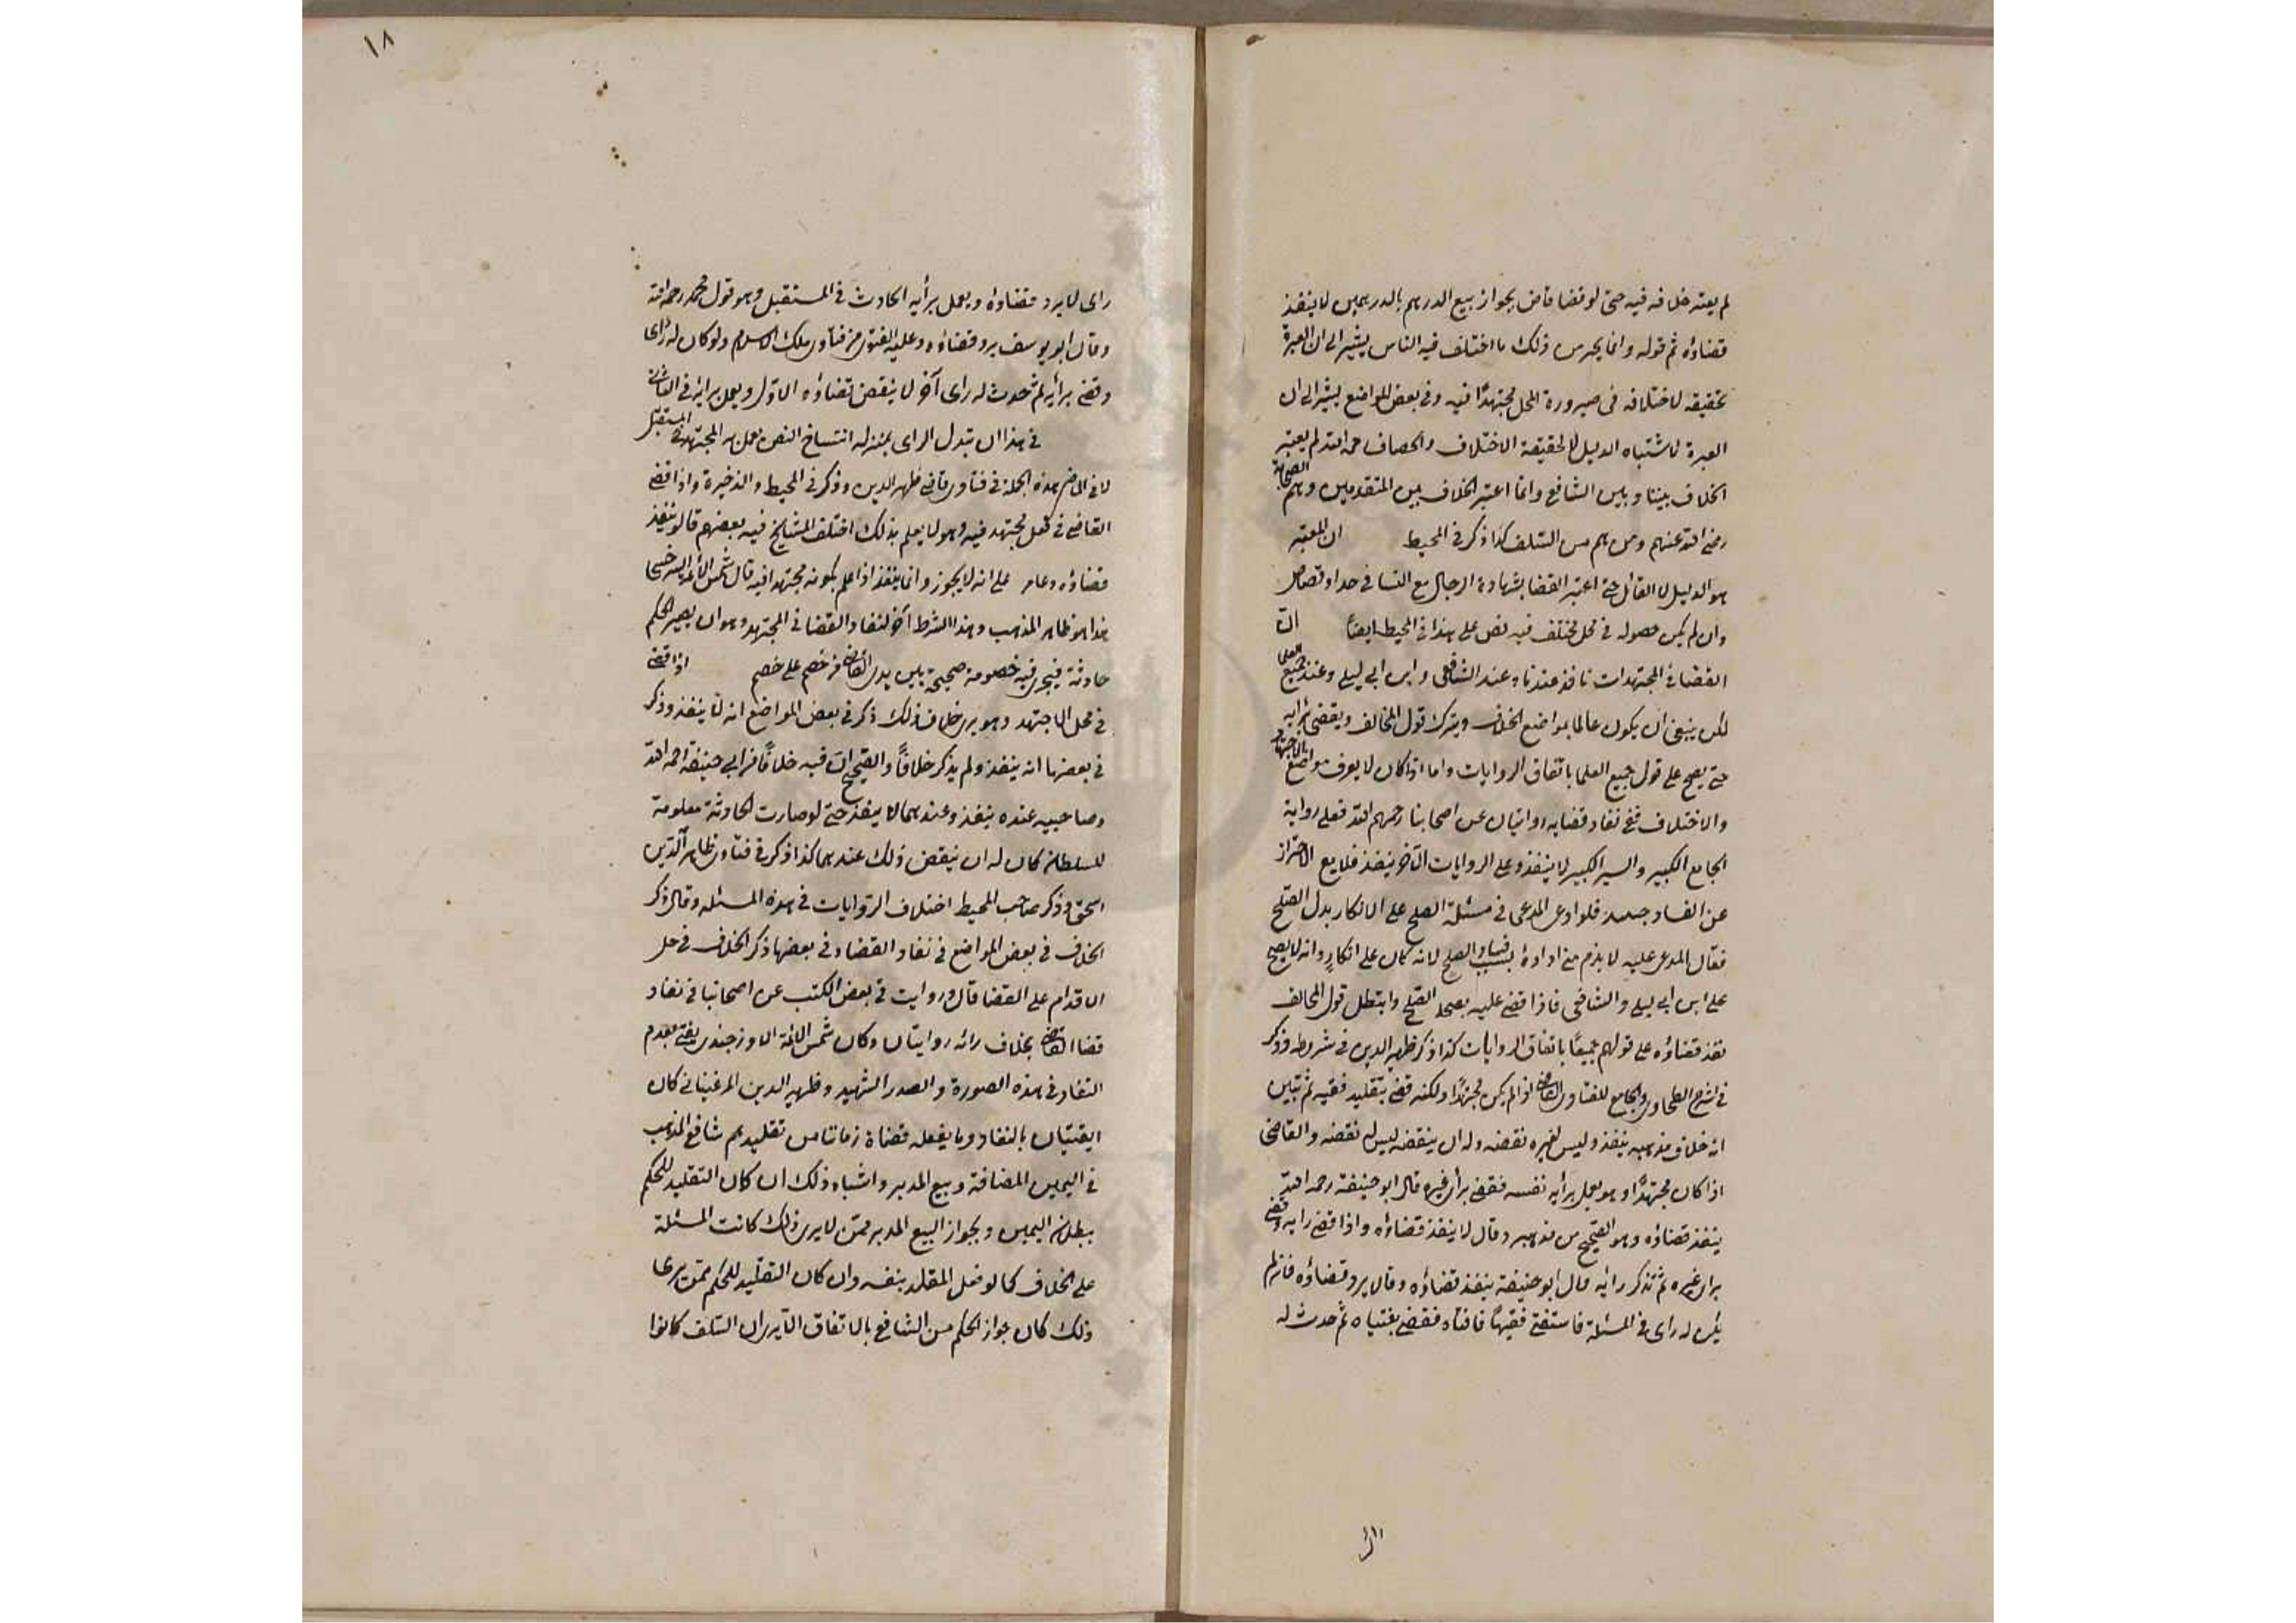 لم يعتبر خلافه فيه حتى لو قضا قاض بجواز بيع الدرهم بالدرهمين لا ينفذ
قضاؤه ثم قوله وانما يجر من ذلك ما اختلف فيه الناس يشير الى ان العبرة
تحقيقه لاختلافه فى صيرورة المحل مجتهدًا فيه وفى بعض المواضع يشير الى ان
العبرة لاشتباه الدليل لا لحقيقة الاختلاف والخصاف رحمه الله لم يعتبر
الخلاف بيننا وبين الشافعى وانما اعتبر الخلاف بين المتقدمين وهم الصحابة
رضى الله عنهم ومن بهم من السّلف كذا ذكر فى المحيط ان المعتبر
هو الدليل لا القائل حتى اعتبر القضا بشهادة الرجال مع النسا فى حد او قصاص
وان لم يكن حصوله فى محل مختلف فيه نص على هذا فى المحيط ايضًا ان
القضا فى المجتهدات نافذ عندنا وعند الشافعى وابن ابى ليلى وعند جميع العلما
لكن ينبغى ان يكون عالما بمواضع الخلاف ويترك قول المخالف ويقضى برأيه
حتى يصح على قول جميع العلما باتفاق الروايات واما اذا كان لا يعرف مواضع الاجتهاد
والاختلاف ففى نفاد قضايه روايتان عن اصحابنا رحمهم الله فعلى رواية
الجامع الكبير والسير الكبير لا ينفذ وعلى الروايات الآخر ينفذ فلا يقع الاحتراز
عن الفساد فلو ادعى المدعى فى مسئلة الصلح على الانكار بدل الصّلح
فقال المدعى عليه لا يلزم منى اداؤه بسبب فساد الصلح لانه كان على انكارٍ وانه لا يصح
على ابن ابى ليلى والشافعى فاذا قضى عليه بصحة الصّلح وابتطل قول المخالف
نفذ قضاؤه على قولهم جميعًا باتفاق الروايات كذا ذكر ظهير الدين فى شروطه وذكر
فى شرح الطحاوى والجامع للفتاوى القاضى اذا لم يكن مجتهدًا ولكنه قضى بتقليد فقيه ثم تبين
انه خلاف مذهبه ينفذ وليس لغيره نقضه وله ان ينقضه ليس له نقضه والقاضى
اذا كان مجتهدًا وهو يعمل برأيه نفسه فقضى برأى غيره قال ابو حنيفة رحمه الله
ينفذ قضاؤه وهو الصّحيح من مذهبه وقال لا ينفذ قضاؤه واذا قضى رايه وقضى
براى غيره ثم تذكر رائه قال ابو حنيفة ينفذ قضاؤه وقال يرد قضاؤه فان لم
يكن له راى فى المسئلة فاستفتى فقيهًا فافتاه فقضى بفتياه ثم حدث له
١٨
راى لا يرد قضاؤه ويعمل برأيه الحادث فى المستقبل وهو قول محمد رحمه الله
وقال ابو يوسف يرد قضاؤه وعليه الفتوى من فتاوى ملك الاسلام ولو كان له رأى
وقضى برأيه ثم حدث له راى آخر لا ينقض قضاؤه الاوّل ويعمل برائه فى الثانى
فى هذا ان تبدل الراى بمنزلة انتساخ النص يعمل به المجتهد فى المستقبل
لا فى الماضى هذه الجملة فى فتاوى قاضى ظهير الدين وذكر فى المحيط والذخيرة واذا قضى
القاضى فى فعل مجتهد فيه وهو لا يعلم بذلك اختلف المشايخ فيه بعضهم قالو ينفذ
قضاؤه وعامر على انه لا يجوز وانما ينفذ اذا علم بكونه مجتهدا فيه قال شمس الأئمة السرخسى
هذا هو ظاهر المذهب وهذا الشرط آخر لنفاد القضا فى المجتهد وهو ان يصير الحكم
حادثة فيجرى فيه خصومة صحيحة بين يدى القاضى من خصم على خصم اذا قضى
فى محل الاجتهد وهو يرى خلاف ذلك ذكر فى بعض المواضع انه لا ينفذ وذكر
فى بعضها انه ينفذ ولم يذكر خلافًا والصّحيح انّ فيه خلافًا من ابى حنيفة رحمه الله
وصاحبيه عنده ينفذ وعندهما لا ينفذ حتى لو صارت الحادثة معلومة
للسلطان كان له ان ينقض ذلك عندهما كذا ذكر فى فتاوى ظاهر الّدين
اسحق وذكر صاحب المحيط اختلاف الرّوايات فى هذه المسئله وقال ذكر
الخلاف فى بعض المواضع فى نفاد القضا وفى بعضها ذكر الخلاف فى حل
الاقدام على القضا قال ورايت فى بعض الكتب عن اصحابنا فى نفاد
قضا القاضى بخلاف رائه روايتان وكان شمس الائمة الاوزجندى يفتى بعدم
النفاد فى هذه الصورة والصدر الشهيد وظهير الدين المرغينانى كان
ايفتيان بالنفاد وما يفعله قضاة زماننا من تقليدهم شافعى المذهب
فى اليمين المضافة وبيع المدبر واشباه ذلك ان كان التقليد للحكم
ببطلان اليمين وبجواز البيع المدبر ممّن لا يرى ذلك كانت المسئلة
على الخلاف كما لو فعل المقلد بنفسه وان كان التقليد للحكم ممّن يرى
ذلك كان جواز الحكم من الشافعى بالاتفاق الّا يرى ان السّلف كانوا